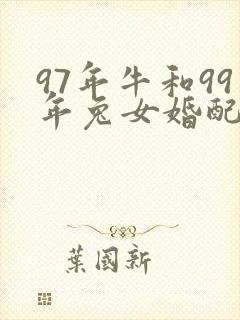 97年牛和99
年兔女婚配
葉國新